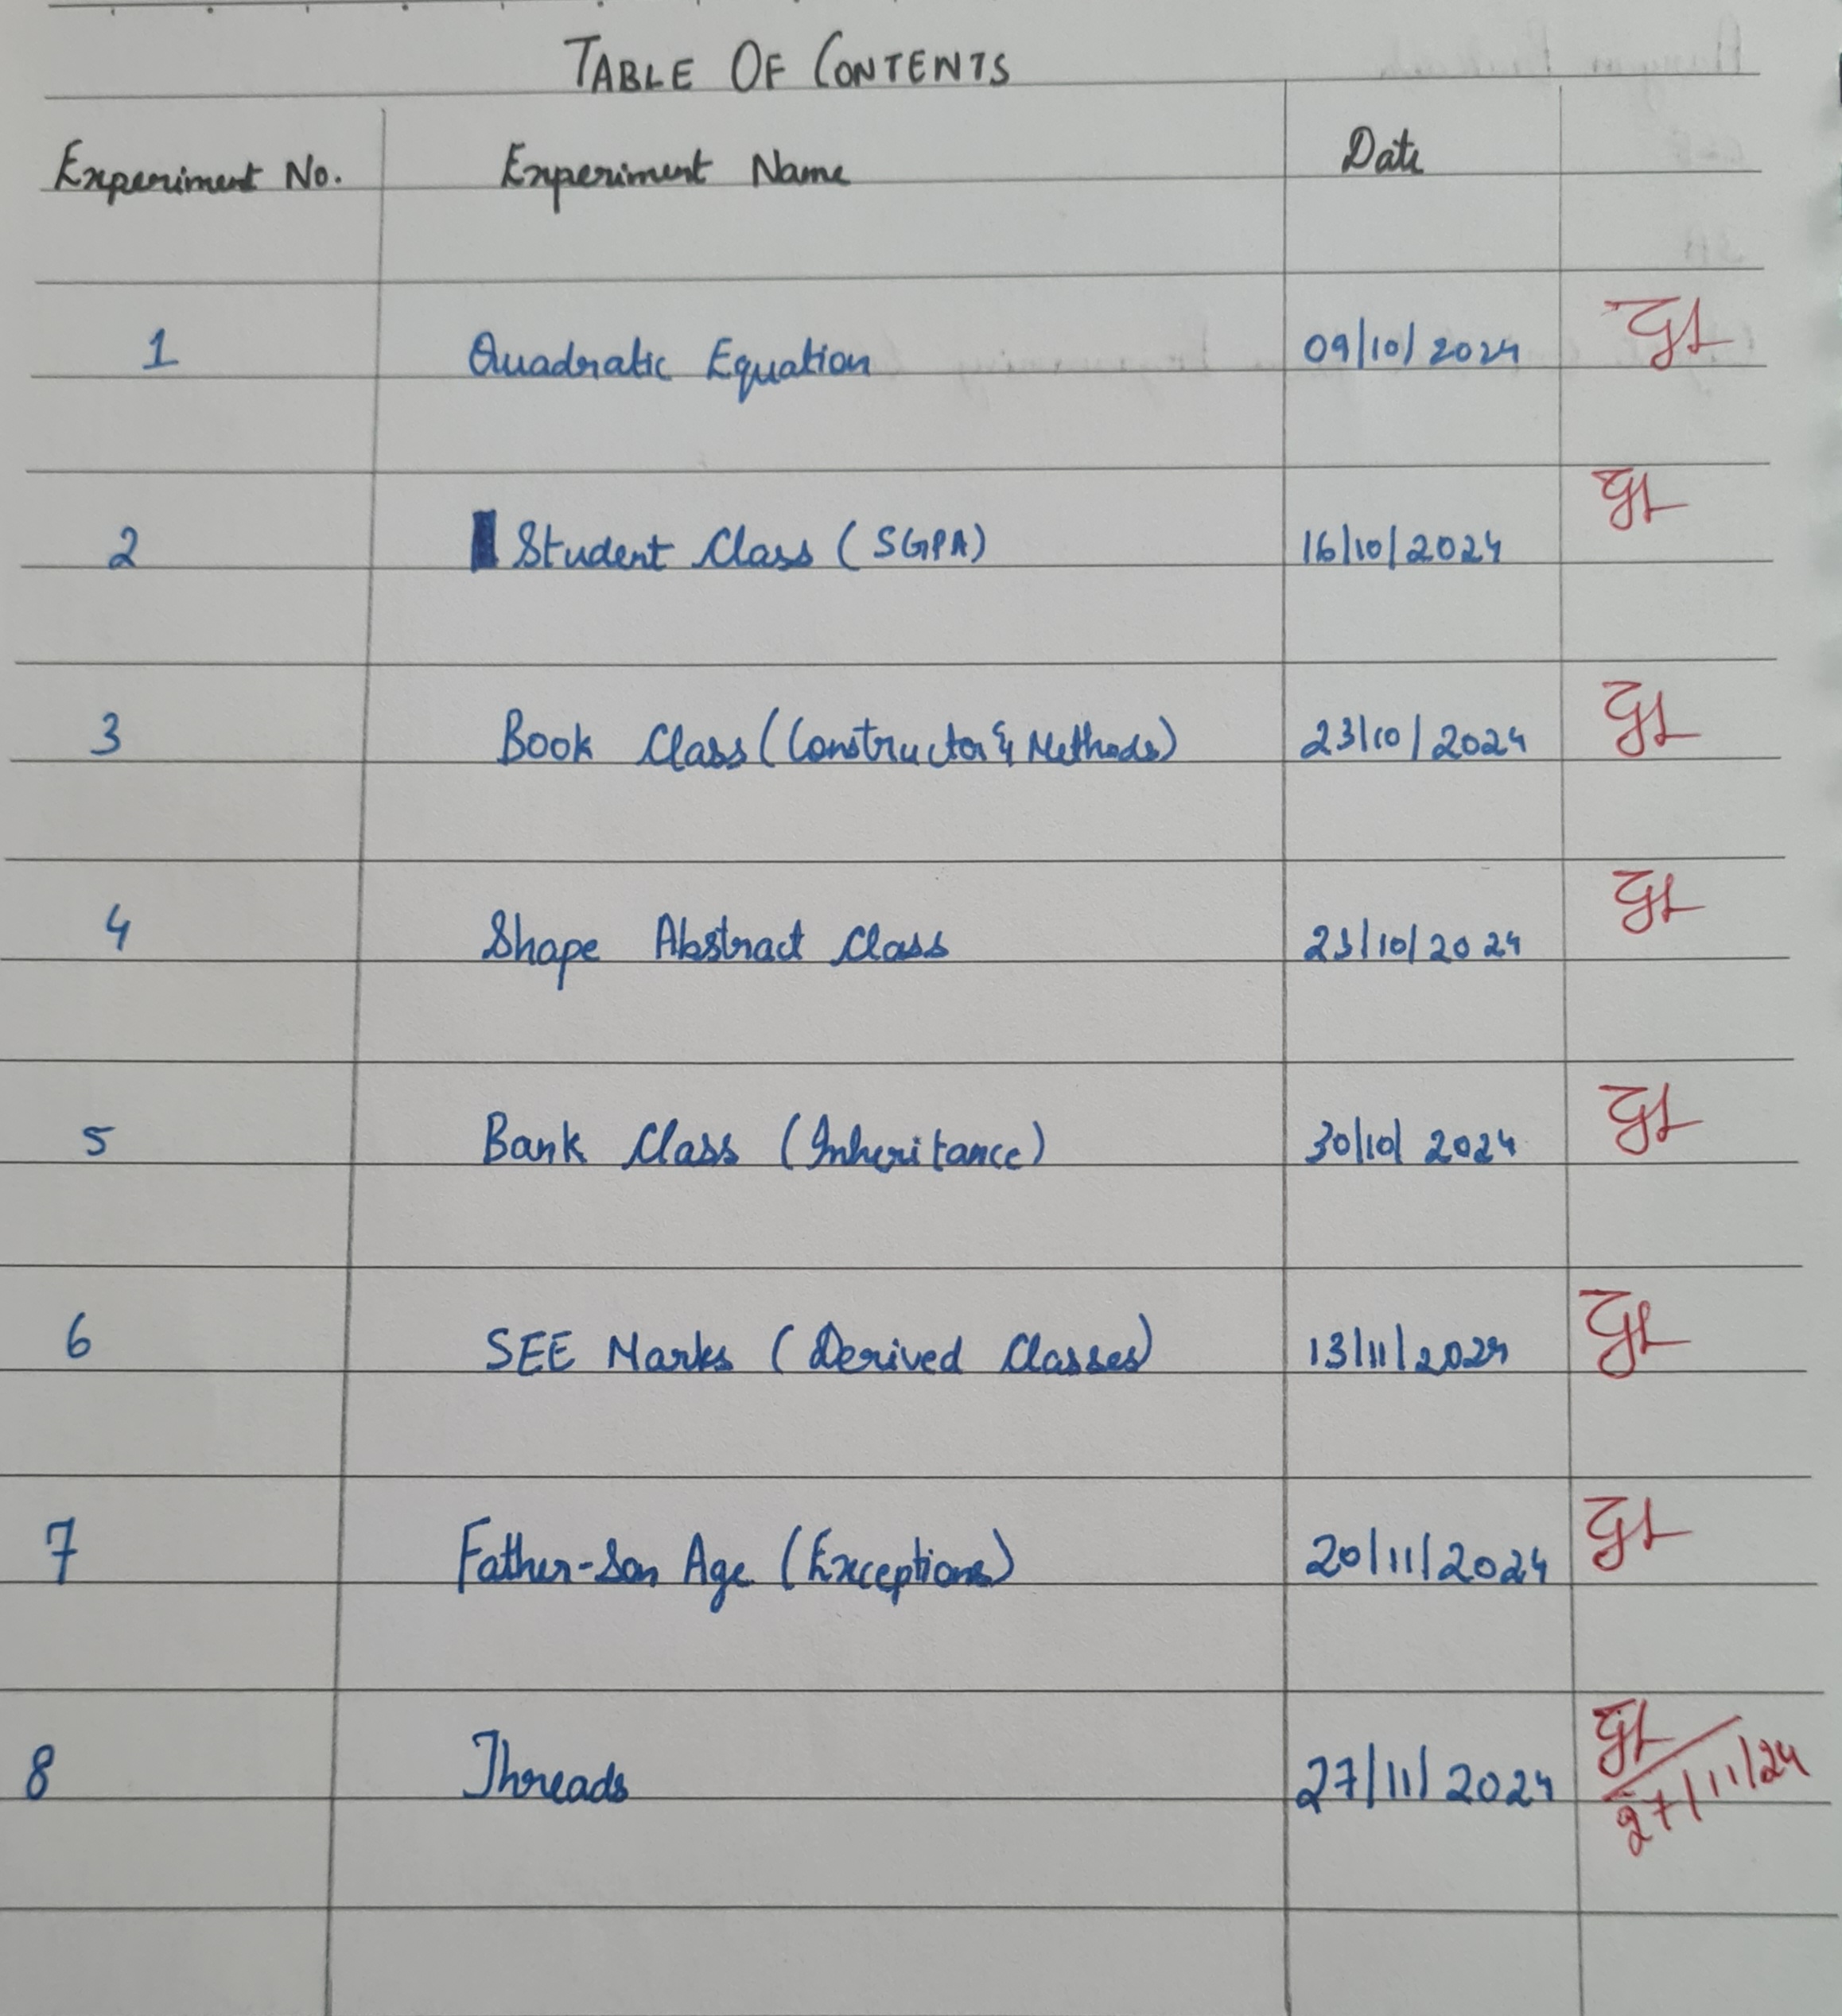 TABLE OF CONTENTS
Experiment No. Experiment Name Date
1 Quadratic Equation 09/10/2024
2 Student Class (SGPA) 16/10/2024
3 Book Class (Constructor & Methods) 23/10/2024
4 Shape Abstract Class 23/10/2024
5 Bank Class (Inheritance) 30/10/2024
6 SEE Marks (Derived Classes) 13/11/2024
7 Father-Son Age (Exceptions) 20/11/2024
8 Threads 27/11/2024
27/11/24